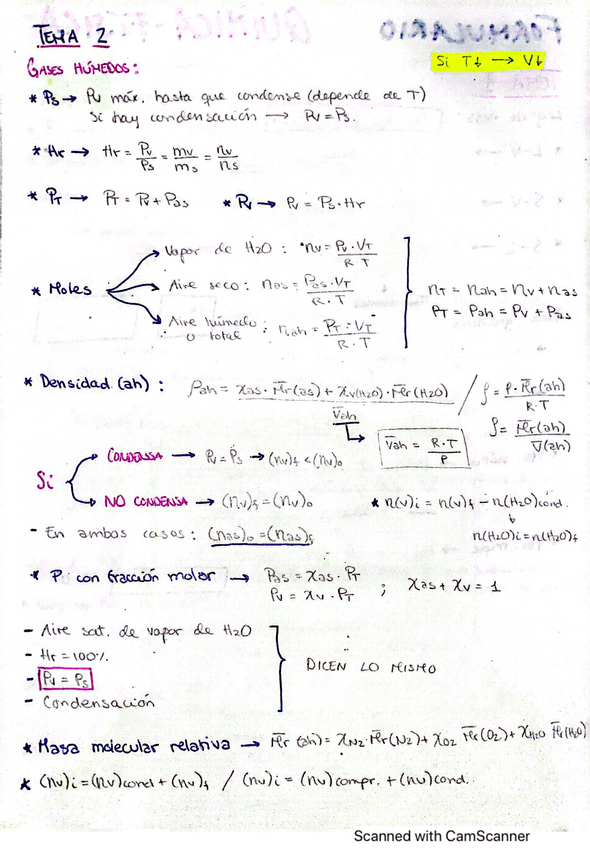 TEMA 2
FORMULARIO
Si T↓ → V↓
GASES HÚMEDOS:
* Ps → Pv máx. hasta que condense (depende de T)
Si hay condensación → Pv = Ps.
* Hr → Hr = Pv/Ps = mv/ms = nv/ns
* PT → PT = Pv + Pas * Pv → Pv = Ps · Hr
* Moles
Vapor de H2O : nv = Pv · VT / R T
Aire seco : nas = Pas · VT / R · T
Aire húmedo o total : nah = PT · VT / R · T
nT = nah = nv + nas
PT = Pah = Pv + Pas
* Densidad (ah) : ρah = χas · M̄r(as) + χv(H2O) · M̄r(H2O) / V̄ah / ρ = P · M̄r(ah) / R · T
V̄ah = R · T / P
ρ = M̄r(ah) / V̄(ah)
Si
CONDENSA → Pv = Ps → (nv)f < (nv)o
NO CONDENSA → (nv)f = (nv)o
* n(v)i = n(v)f - n(H2O)cond.
n(H2O)i = n(H2O)f
- En ambos casos : (nas)o = (nas)f
* Pi con fracción molar → Pas = χas · PT
Pv = χv · PT ; χas + χv = 1
- Aire sat. de vapor de H2O
- Hr = 100%.
- Pv = Ps
- Condensación
DICEN LO MISMO
* Masa molecular relativa → M̄r (ah) = χN2 · M̄r(N2) + χO2 M̄r(O2) + χH2O M̄r(H2O)
* (nv)i = (nv)cond + (nv)f / (nv)i = (nv)compr. + (nv)cond.
Scanned with CamScanner